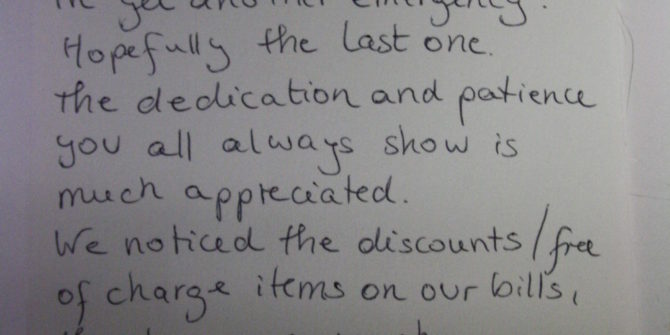 yet another emergency.
Hopefully the last one.
the dedication and patience
you all always show is
much appreciated.
We noticed the discounts/free
of charge items on our bills,